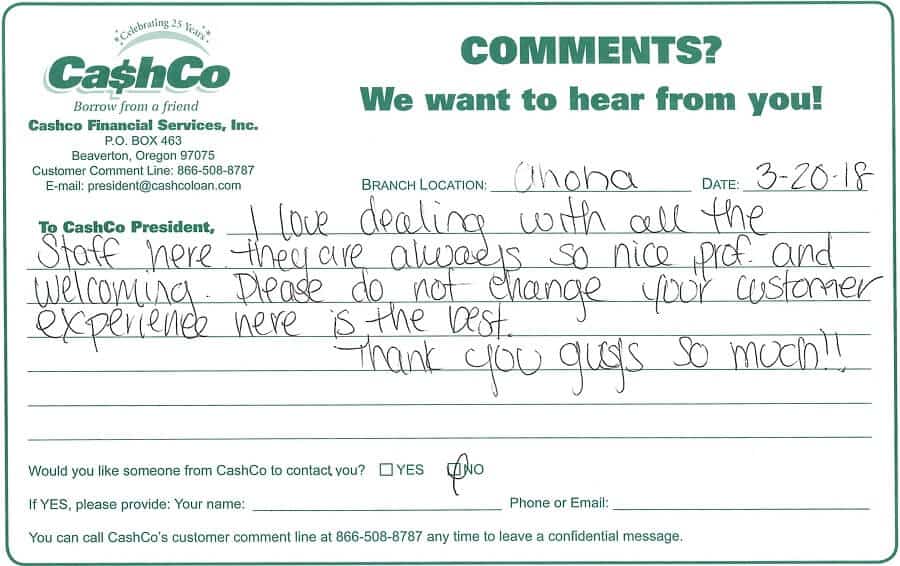 Celebrating 25 Years
Ca$hCo
Borrow from a friend
Cashco Financial Services, Inc.
P.O. BOX 463
Beaverton, Oregon 97075
Customer Comment Line: 866-508-8787
E-mail: president@cashcoloan.com
COMMENTS?
We want to hear from you!
BRANCH LOCATION: DATE: 3-20-18
To CashCo President, I love dealing with all the
Staff here they are always so nice prof. and
welcoming. Please do not change your customer
experience here is the best.
Thank you guys so much!!
Would you like someone from CashCo to contact you? YES NO
If YES, please provide: Your name: Phone or Email:
You can call CashCo's customer comment line at 866-508-8787 any time to leave a confidential message.